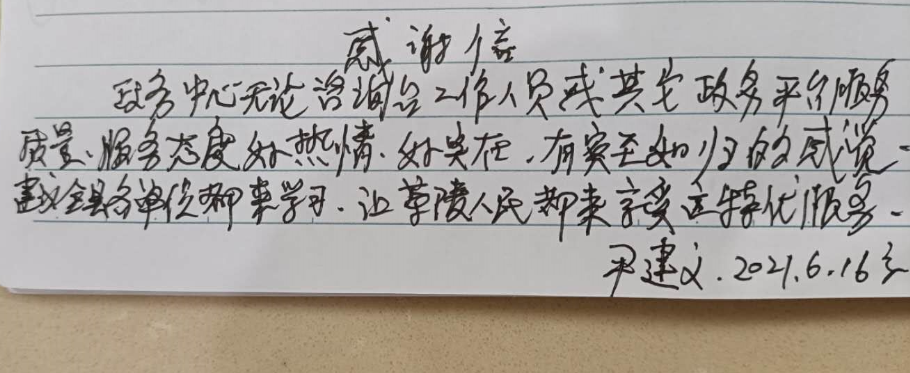 感谢信
政务中心无论咨询台工作人员或其它政务平台服务
质量、服务态度好热情、好实在,有宾至如归的感觉-
建议全县各单位都来学习、让草陵人民都来享受这特优服务.
尹建文.2021.6.16号